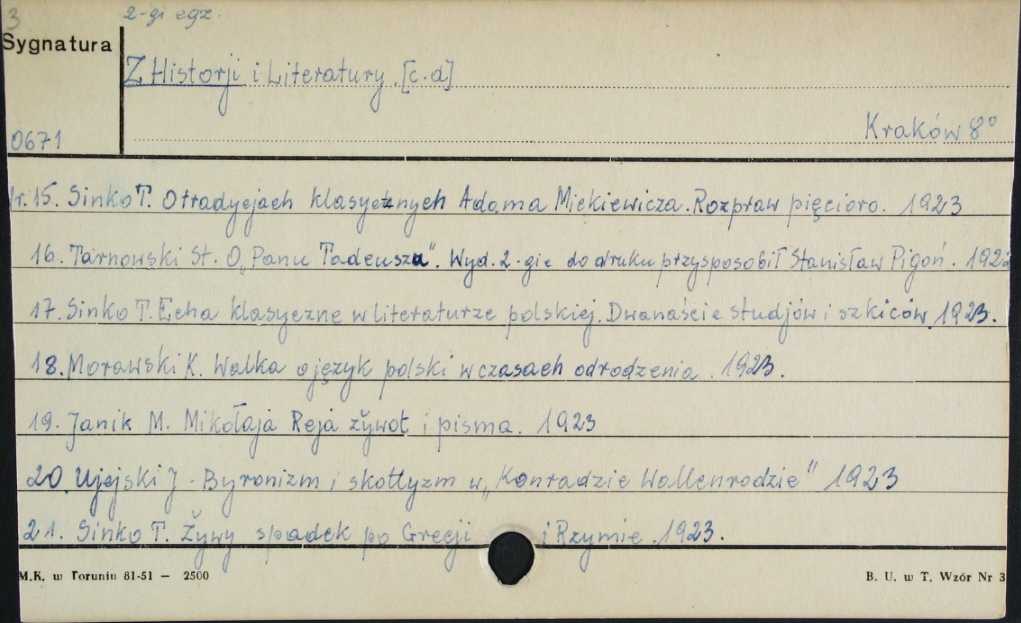 3 2-gi egz.
Sygnatura
Z Historji i Literatury. [c.d]
0671
Kraków 8°
Nr. 15. Sinko T. O tradycjach klasycznych Adama Mickiewicza. Rozpraw pięcioro. 1923
16. Tarnowski St. O „Panu Tadeuszu". Wyd. 2-gie do druku przysposobił Stanisław Pigoń. 1922
17. Sinko T. Echa klasyczne w literaturze polskiej. Dwanaście studjów i szkiców. 1923.
18. Morawski K. Walka o język polski w czasach odrodzenia. 1923.
19. Janik M. Mikołaja Reja żywot i pisma. 1923
20. Ujejski J. Byronizm i skottyzm w „Konradzie Wallenrodzie" 1923
21. Sinko T. Żywy spadek po Grecji i Rzymie. 1923.
M.K. w Toruniu 81-51 — 2500
B. U. w T. Wzór Nr 3